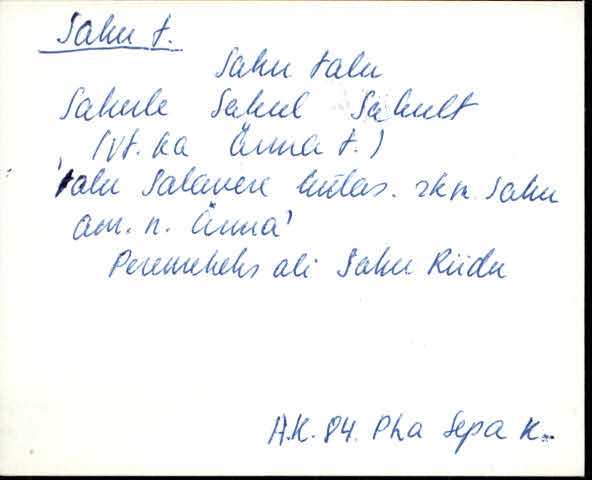 Sahu t.
Sahu talu
Sahule Sahul Sahult
(vt. ka Änna t.)
'talu Salavere külas. rkp. Sahu
am. n. Änna'
Peremeheks oli Sahu Riidu
A.K. 84. Pha Sepa k.